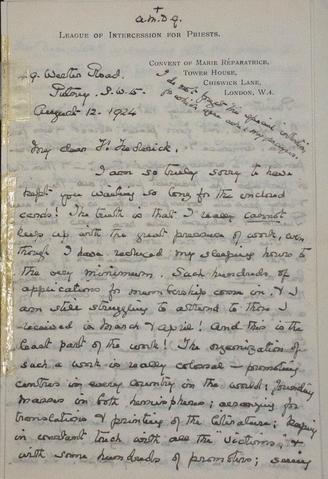 A.M.D.G.
LEAGUE OF INTERCESSION FOR PRIESTS.
CONVENT OF MARIE RÉPARATRICE,
TOWER HOUSE,
CHISWICK LANE,
LONDON, W.4.
9. Road.
Putney. S.W.15.
August 12. 1924
I do not forget the special intention
for which you asked my prayers
My dear Fr Frederick,
I am so truly sorry to have
kept you waiting so long for the enclosed
cards! The truth is that I really cannot
keep up with the great pressure of work, even
though I have reduced my sleeping hours to
the very minimum. Such hundreds of
applications for membership come in, & I
am still struggling to attend to those I
received in March & April! And this is the
least part of the work! The organization of
such a work is really colossal – promoting
centres in every country in the world; founding
masses in both hemispheres; arranging for
translations & printing of the literature; keeping
in constant touch with all the "Victims", &
with some hundreds of promoters; seeing